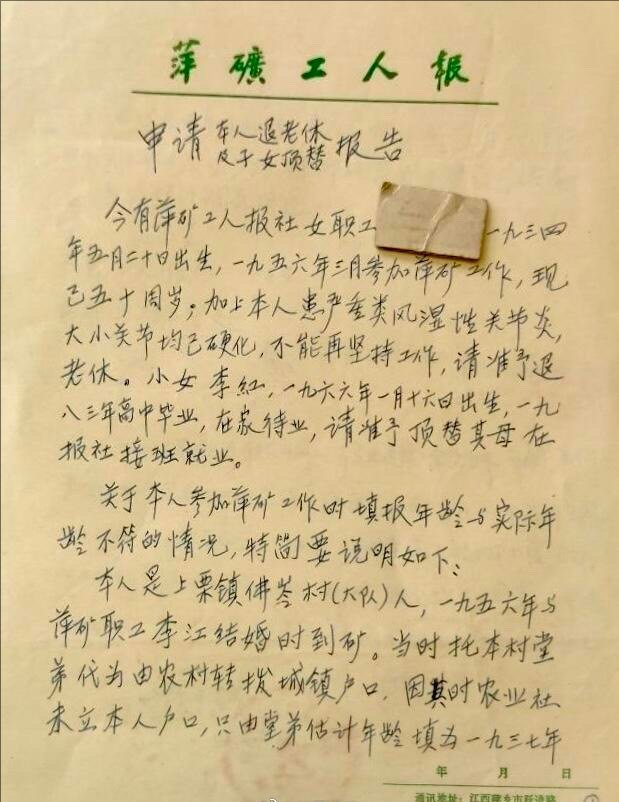 萍礦工人報
申请本人退老休及子女顶替报告
今有萍矿工人报社女职工 一九三四
年五月二十日出生，一九五六年三月参加萍矿工作，现
已五十周岁；加上本人患严重类风湿性关节炎，
大小关节均已硬化，不能再坚持工作，请准予退
老休。小女李红，一九六六年一月十六日出生，一九
八三年高中毕业，在家待业，请准予顶替其母在
报社接班就业。
关于本人参加萍矿工作时填报年龄与实际年
龄不符的情况，特简要说明如下：
本人是上栗镇佛岺村(大队)人，一九五六年与
萍矿职工李江结婚时到矿。当时托本村堂
弟代为由农村转拨城镇户口，因其时农业社
未立本人户口，只由堂弟估计年龄填为一九三七年
年 月 日
通讯地址：江西萍乡市跃进路